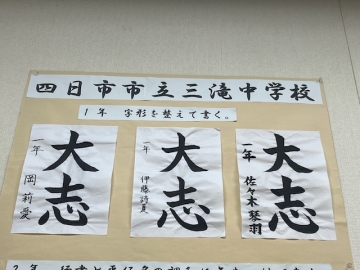 四日市市立三滝中学校
1年 字形を整えて書く。
大志
一年 岡莉愛
大志
一年 伊藤詩夏
大志
一年 佐々木琴羽